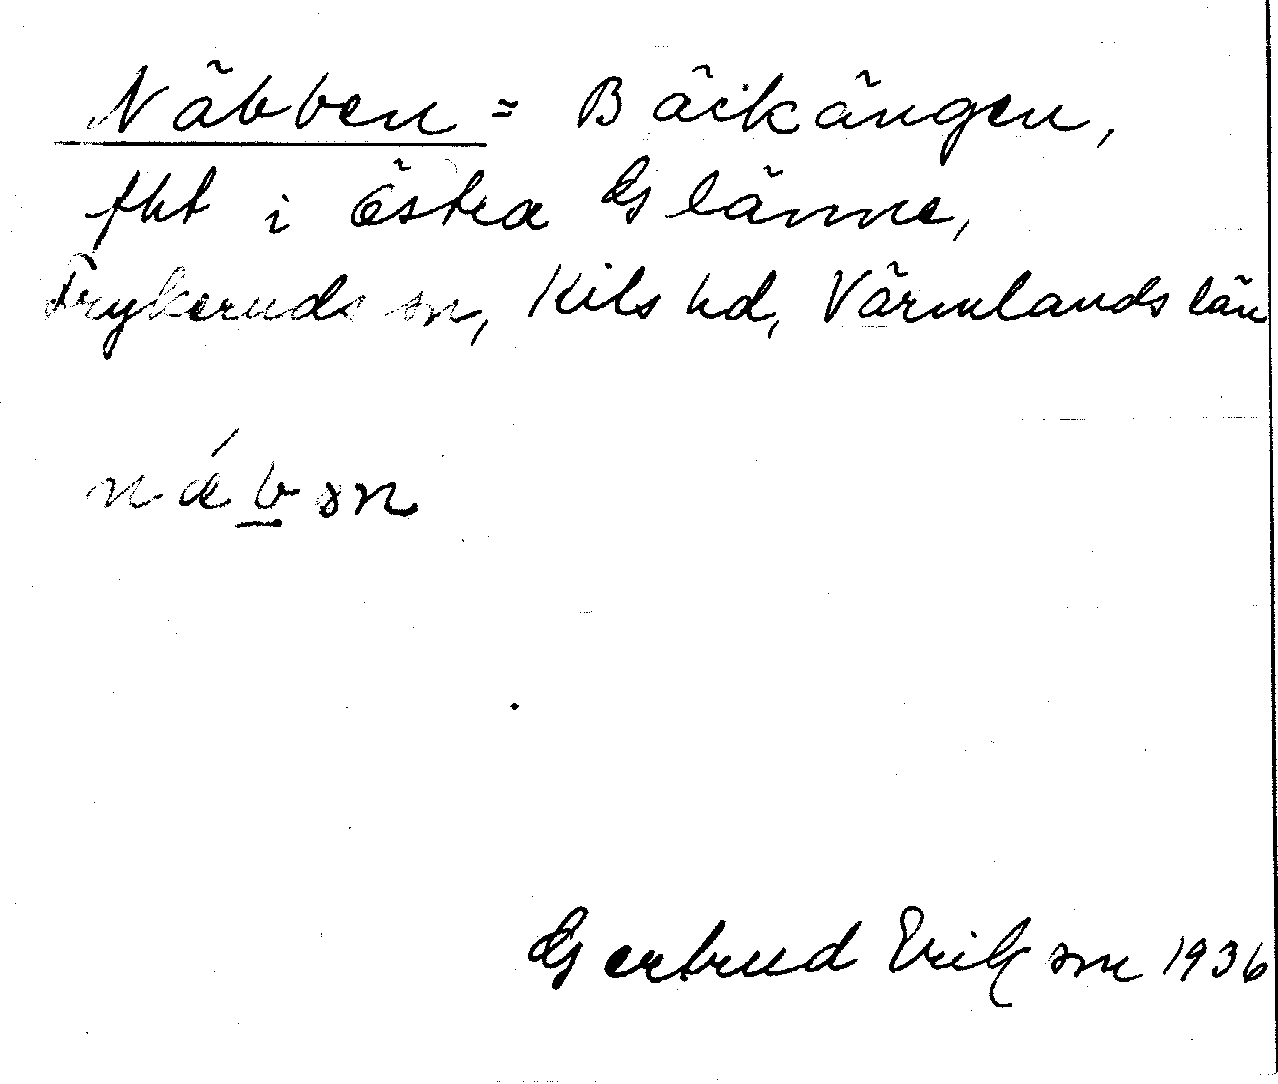 Näbben = Bäckängen,
fht i Östra Glänne,
Frykeruds sn, Kils hd, Värmlands län
næ´bən
Gertrud Erikson 1936